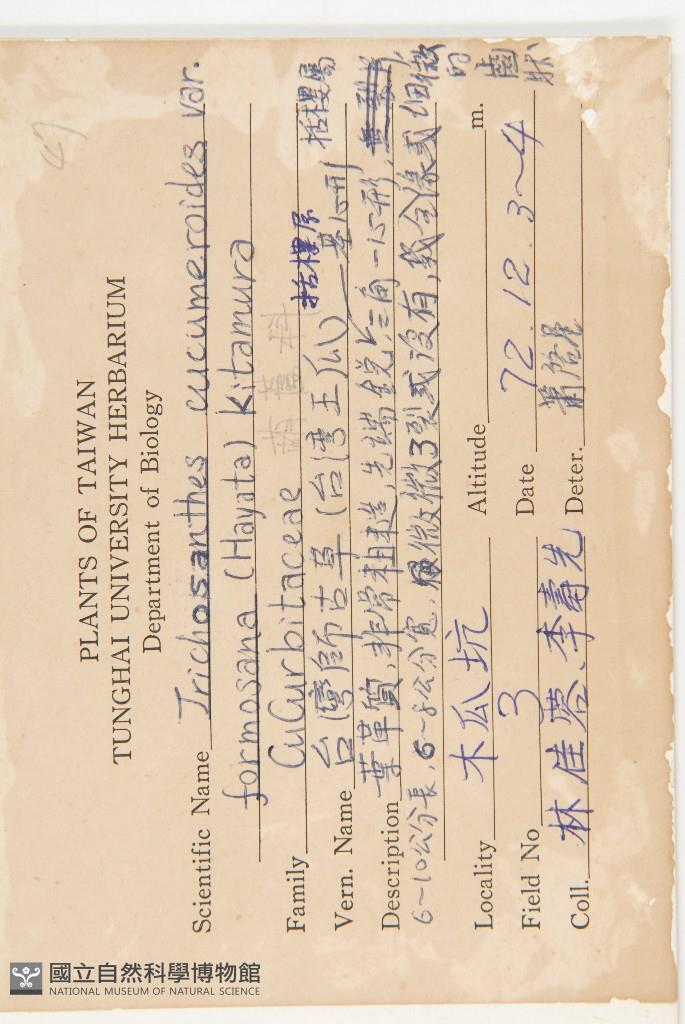 PLANTS OF TAIWAN
TUNGHAI UNIVERSITY HERBARIUM
Department of Biology
47
Scientific Name Trichosanthes cucumeroides var.
formosana (Hayata) Kitamura
Family CuCurbitaceae 括樓屬 括樓屬
Vern. Name 台灣師古草 (台灣王瓜) 基心形
Description 葉革質,非常粗糙,先端銳尖,三角-心形,
6~10公分長,6~8公分寬,微微3裂或沒有,幾全緣或細微的齒狀
Locality 木瓜坑 Altitude m.
Field No 3 Date 72.12.3~4
Coll. 林佳蓉、李壽先 Deter.
國立自然科學博物館
NATIONAL MUSEUM OF NATURAL SCIENCE